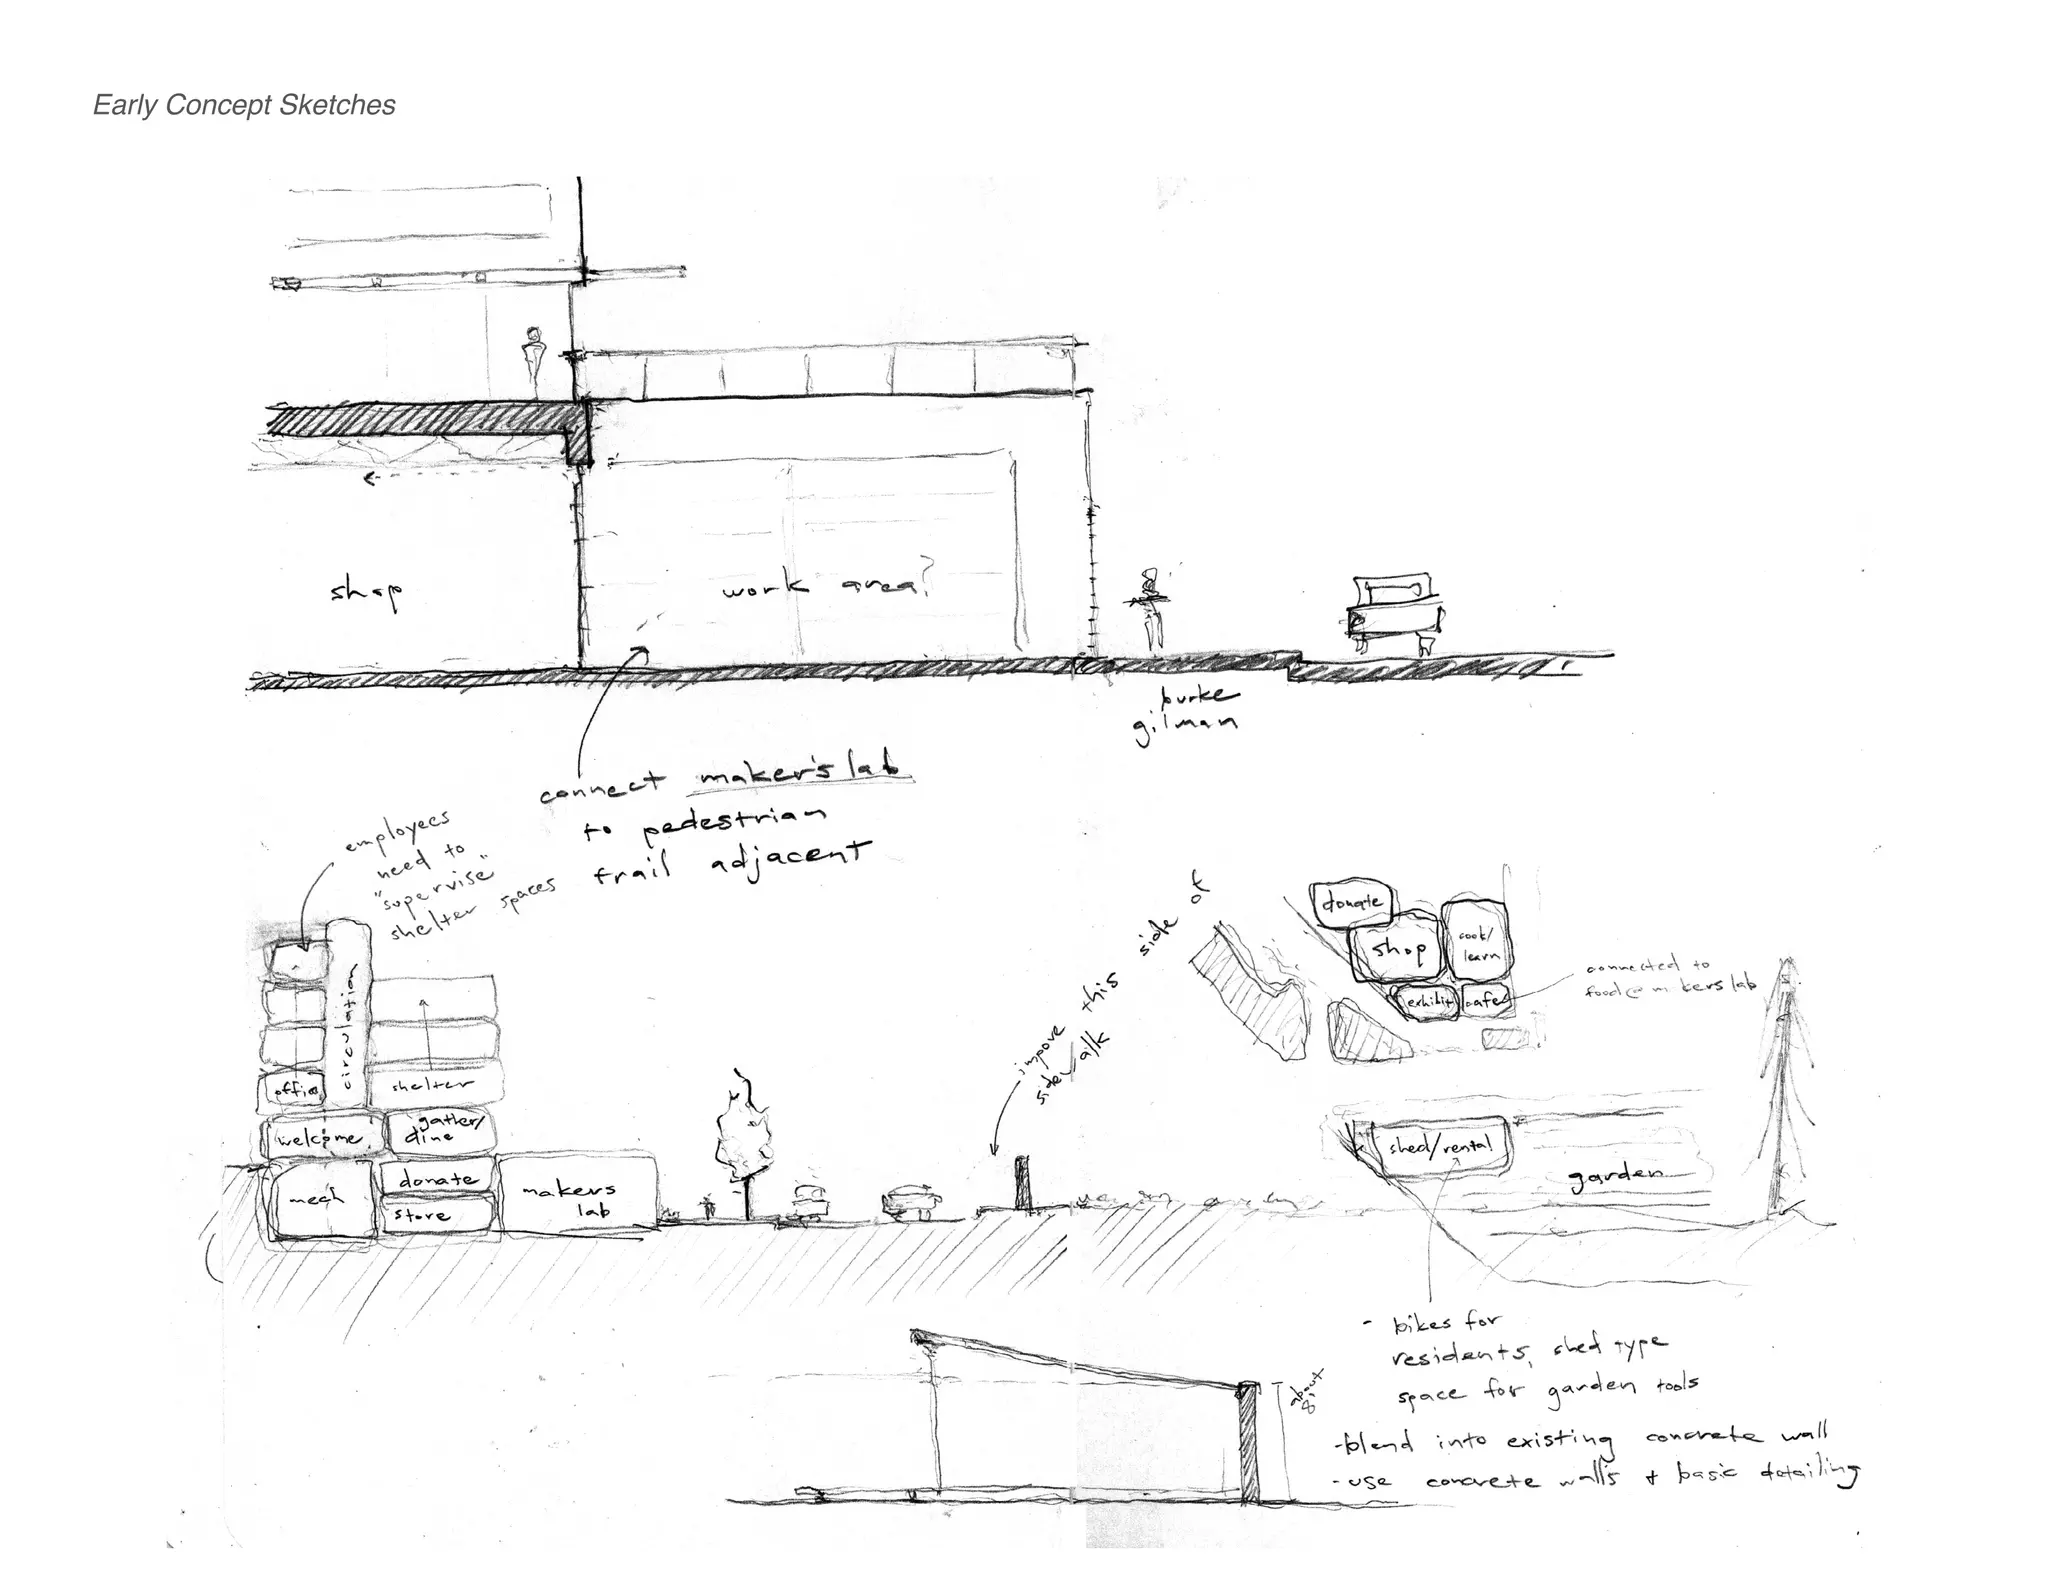 Early Concept Sketches
shop
work area?
burke
gilman
connect maker's lab
to pedestrian
trail adjacent
employees
need to
"supervise"
shelter spaces
circulation
office
shelter
welcome
gather/
dine
mech
donate
store
makers
lab
improve this side of
sidewalk
donate
shop
cook/
learn
exhibit
cafe
connected to
food @ makers lab
shed/rental
garden
- bikes for
residents, shed type
space for garden tools
-blend into existing concrete wall
-use concrete walls & basic detailing
about
8'